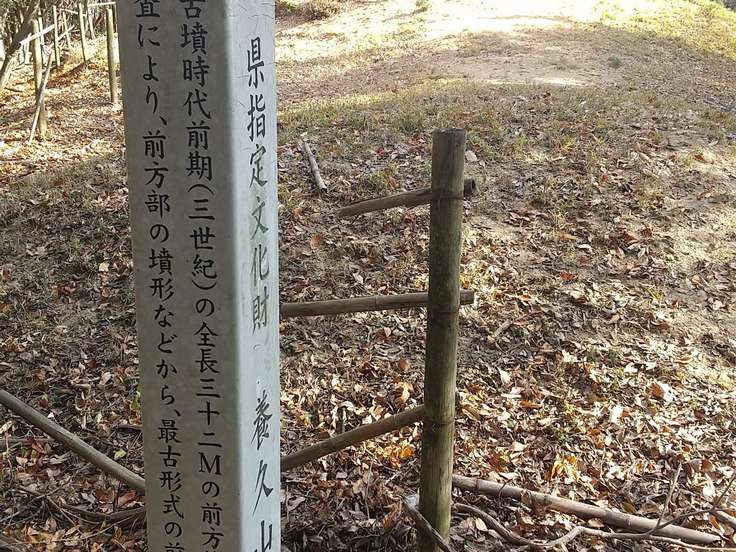 県指定文化財 養久山
古墳時代前期(三世紀)の全長三十二Mの前方
査により、前方部の墳形などから、最古形式の前